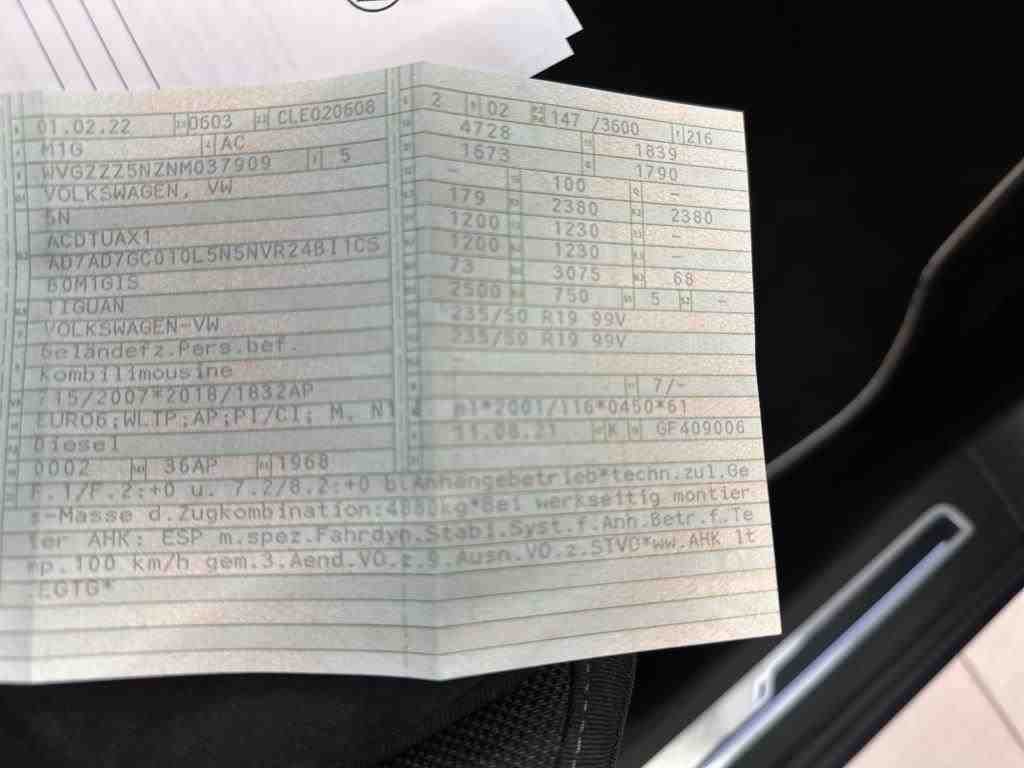 01.02.22 0603 CLE020608
M1G AC
WVGZZZ5NZNM037909 5
VOLKSWAGEN, VW
5N
ACDTUAX1
AD7AD7GC010L5N5NVR24BI1CS
B0M1GIS
TIGUAN
VOLKSWAGEN-VW
Geländefz.Pers.bef.
kombilimousine
715/2007*2018/1832AP
EURO6;WLTP;AP;PI/CI; M, N1
Diesel
0002 36AP 1968
2 02 147 /3600 216
4728 1839
1673 1790
- 100 -
179 2380 2380
1200 1230 -
1200 1230 -
73 3075 68
2500 750 5 -
235/50 R19 99V
235/50 R19 99V
-
7/-
e1*2001/116*0450*61
11.08.21 K GF409006
F.1/F.2:+0 u. 7.2/8.2:+0 b.Anhängebetrieb*techn.zul.Ge
s-Masse d.Zugkombination:4880kg*Bei werkseitig montier
ter AHK: ESP m.spez.Fahrdyn.Stabi.Syst.f.Anh.Betr.f.Te
mp.100 km/h gem.3.Aend.VO.z.9.Ausn.VO.z.STVO*ww.AHK lt
EGTG*